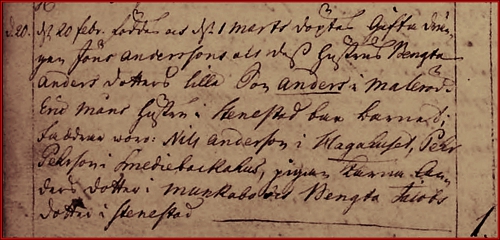 d. 20. d: 20 febr. föddes och d: 1 Marti döptes Gifta drän-
gen Jöns Anderssons och dess Hustrus Bengta
Anders dotters lilla Son Anders i Maleröd:
Hustru i Stenestad bar barnet;
faddrar woro: Nils Anderson i Hagahuset, Pehr
Pehrson i Smediebackahus, pigan Karna
ders dotter i Bengta Jacobs
dotter i Stenestad